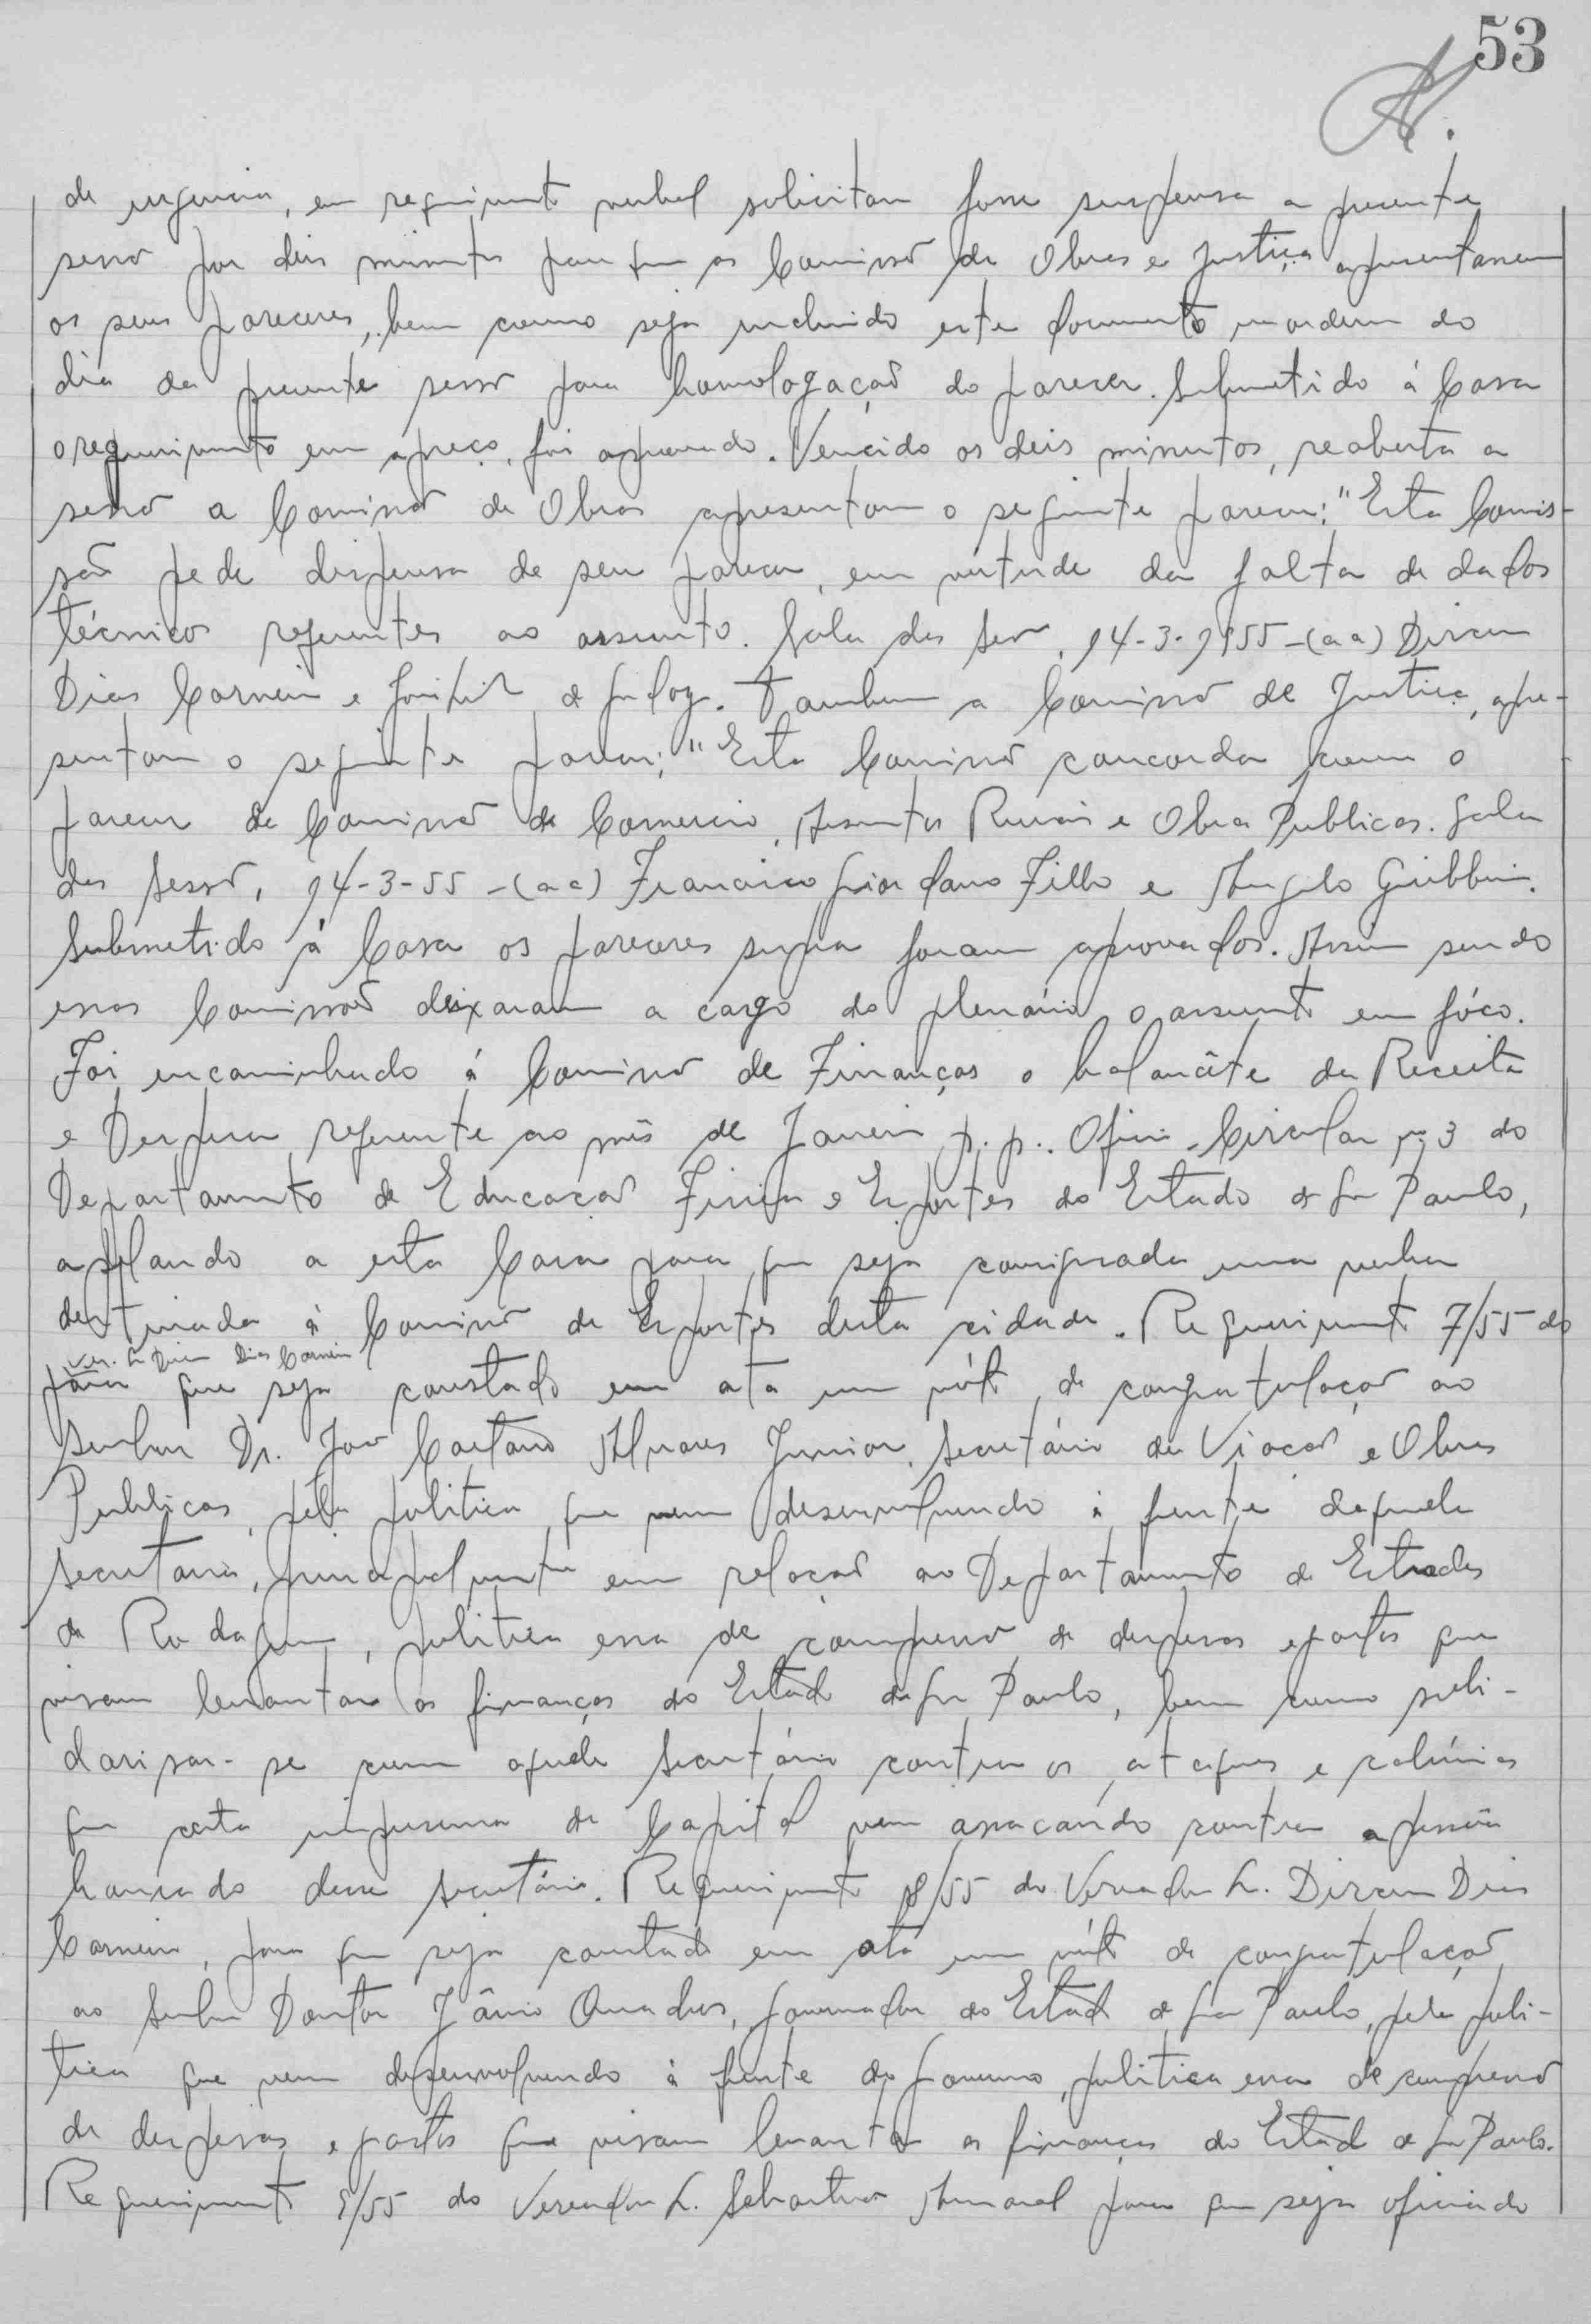 53
de urgencia, em requerimento verbal solicitam fosse suspensa a presente
sessão por dois minutos para que as Comissão de Obras e Justiça apresentassem
os seus pareceres, bem como seja incluido este documento na ordem do
dia da presente sessão para homologação do parecer. Submetido á Casa
o requerimento em apreço, foi aprovado. Vencido os dois minutos, reaberta a
sessão a Comissão de Obras apresentam o seguinte parecer: "Esta Comis-
são pede dispensa de seu parecer, em virtude da falta de dados
técnicos referentes ao assunto. Sala das Sessão, 14-3-1955 -(a a) Dirceu
Dias Carneiro e de Godoy. Tambem a Comissão de Justiça, apre-
sentam o seguinte parecer: "Esta Comissão concorda com o
parecer da Comissão de Comercio, Assuntos Rurais e Obras Publicas. Sala
das Sessão, 14-3-55 -(a a) Francisco Giordano Filho e Angelo Guibbini.
Submetido á Casa os pareceres supra foram aprovados. Assim sendo
essas Comissões deixaram a cargo do plenário o assunto em fóco.
Foi encaminhado á Comissão de Finanças o balancête da Receita
e Despesa referente ao mês de Janeiro p. p.. Oficio-Circular nº 3 do
Departamento de Educação Fisica e Esportes do Estado de São Paulo,
apelando a esta Casa para que seja consignada uma verba
destinada á Comissão de Esportes desta cidade. Requerimento 7/55 do
Ver. L. Dirceu Dias Carneiro
para que seja constado em ata um vóto de congratulação ao
Senhor Dr. João Caetano Alvares Junior, Secretário da Viação e Obras
Publicas, pela politica que vem desenvolvendo á frente daquela
Secretaria, principalmente em relação ao Departamento de Estradas
de Rodagem, politica essa de compressão de despesas e gastos que
visam levantar as finanças do Estado de São Paulo, bem como soli-
darisar-se com aquele Secretário contra os ataques e calúnias
que certa imprensa da Capital vem assacando contra a pessôa
honrado desse secretário. Requerimento 8/55 do Vereador L. Dirceu Dias
Carneiro, para que seja constado em ata um vóto de congratulação
ao Senhor Doutor Jânio Quadros, governador do Estado de São Paulo, pela poli-
tica que vem desenvolvendo á frente do governo, politica essa de compressão
de despesas e gastos que visam levantar as finanças do Estado de São Paulo.
Requerimento 9/55 do Vereador L. Sebastião Amaral para que seja oficiado